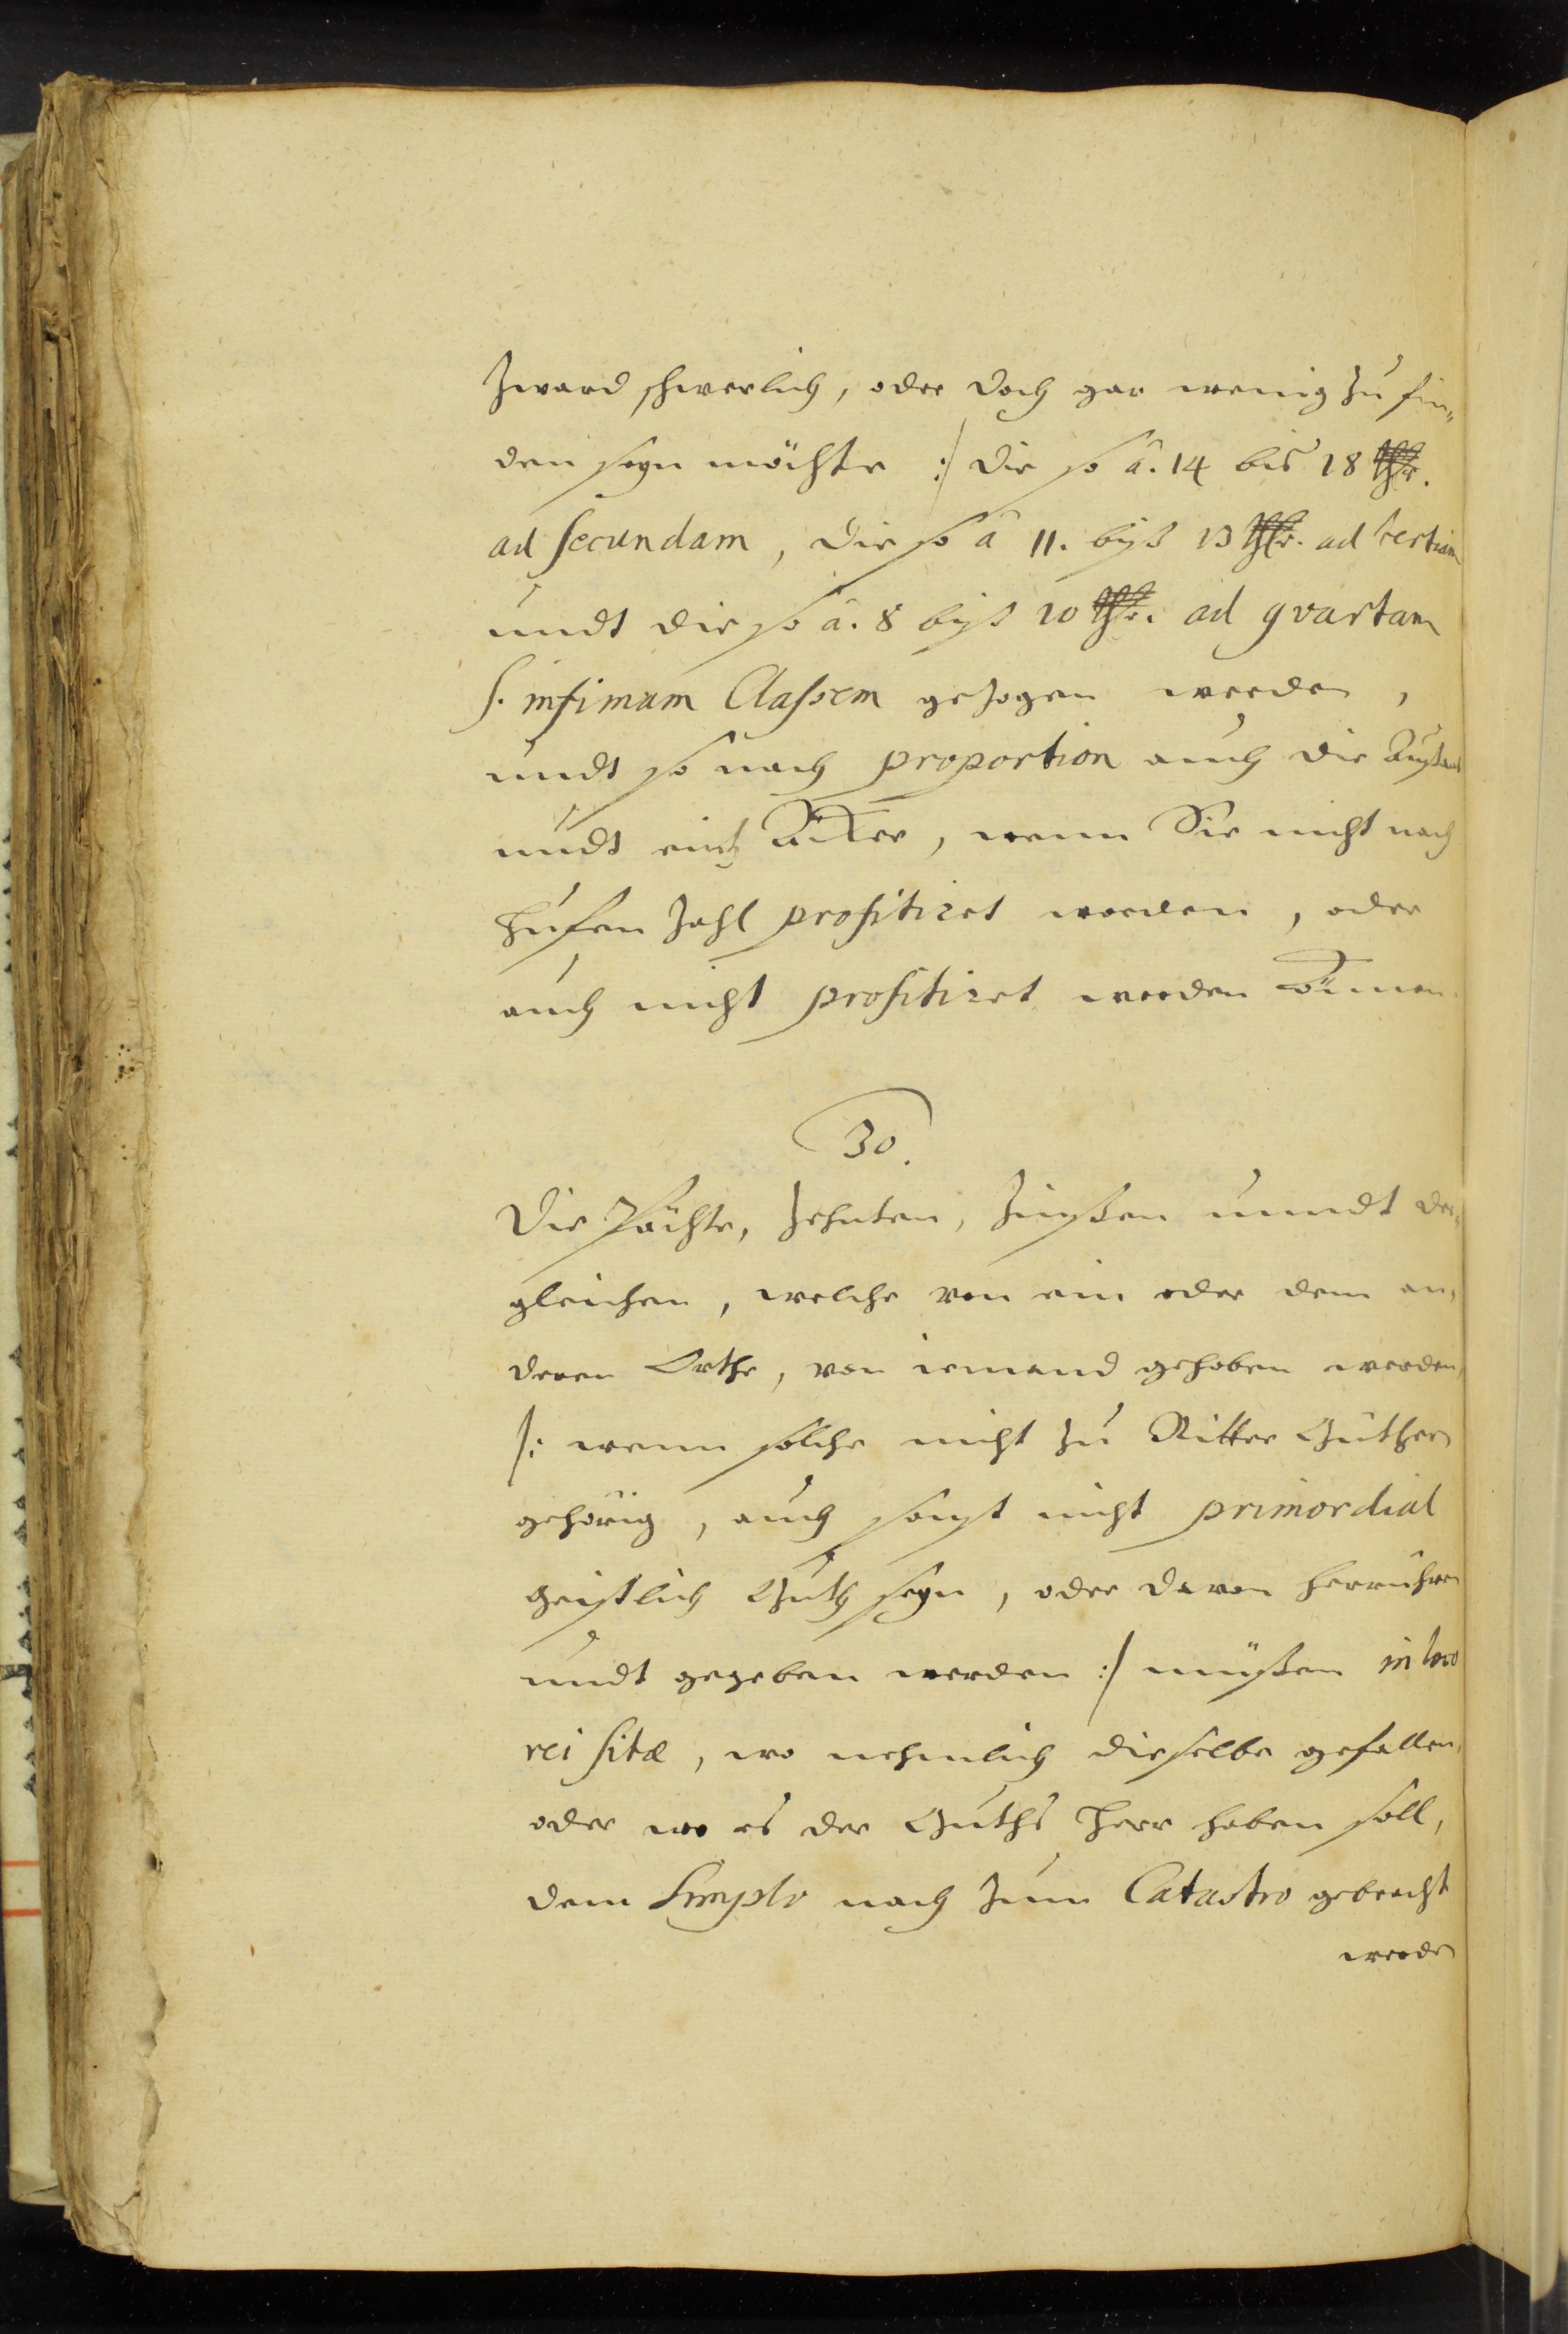 zward schwerlich, oder doch gar wenig zu fin„
den seyn möchte :/ die so â. 14 bis 18 Thlr.
ad secundam, die so â 11. biß 13 Thlr. ad tertiam
undt die so â. 8 biß 10 Thlr. ad qvartam
s. infimam Classem gezogen werden,
undt so nach proportion auch die
undt Äcker, wenn Sie nicht nach
Hufen Zahl profitiret worden, oder
auch nicht profitiret werden können.
30.
Die Pächte, Zehnten, Zinßen unndt der„
gleichen, welche von ein oder dem an„
deren Orthe, von iemand gehoben werden,
/: wenn solche nicht zu Ritter Güthern
gehörig, auch sonst nicht primordial
Geistlich Guth seyn, oder davon herrühren
undt gegeben werden :/ müßen in loco
rei sitæ, wo nehmlich dieselbe gefallen,
oder wo es der Guths Herr haben soll,
dem Simplo nach zum Catastro gebracht
werden